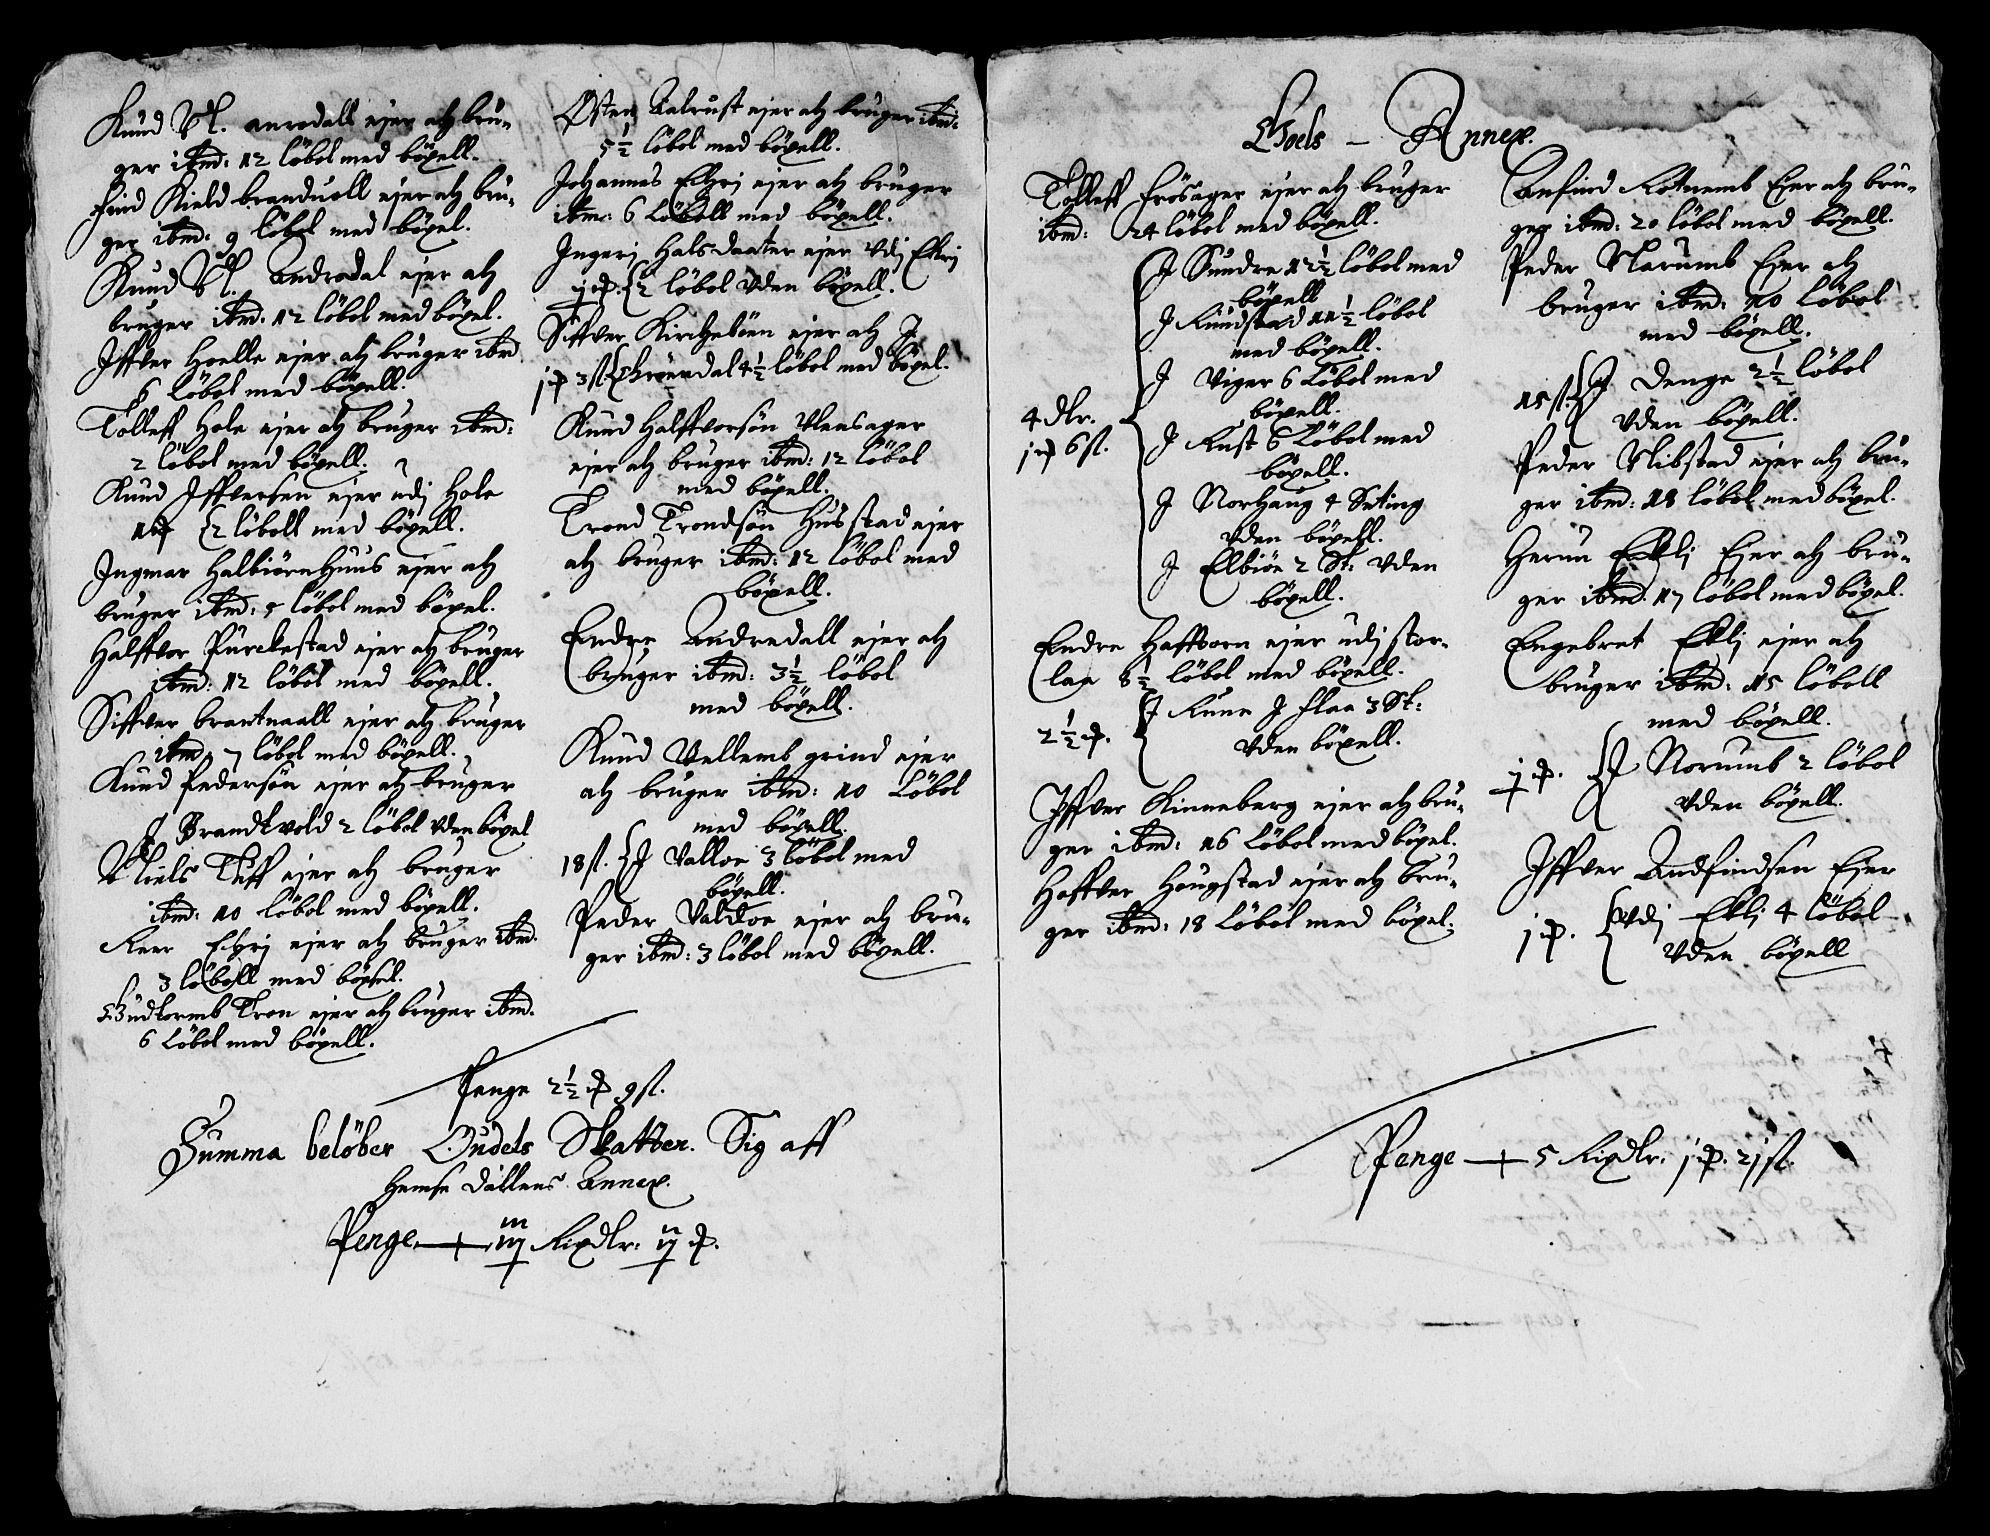 Knud Vl. anrodall ejer och bru-
ger ibm: 12 löbol med böxell.
find Kield branduoll ejer och bru-
ger ibm: 9 löbol med böxel.
Knud Vl. Androdal ejer och
bruger ibm: 12 löbol med böxel.
Iffver Hoelle ejer och bruger ibm
6 Löbol med böxell.
Tolleff Hole ejer och bruger ibm:
2 löbol med böxell.
Knud Iffversen ejer udj Hole
2 löboll med böxell.
Ingmar HalbiörnHuus ejer och
bruger ibm: 5 löbol med böxel.
Halffvor Purckestad ejer och bruger
ibm: 12 löbol med böxell.
Siffver brantnaall ejer och bruger
ibm: 7 löbol med böxell.
Knud Pedersön ejer och bruger
J Brandtvold 2 löbol vden böxel
Niels Tuff ejer och bruger
ibm: 10 löbol med böxell.
Reer Echrj ejer och bruger ibm.
3 löboll med böxel.
Gudtormb Tron ejer och bruger ibm.
6 Löbol med böxell.
Østen Balrust ejer och bruger ibm:
5½ löbol med böxell.
Johannes Echrj ejer och bruger
ibm: 6 Löboll med böxell.
Ingerj Halsdaater ejer vdj Ekrj
2 löbol vden böxell.
Siffver Kircheböen ejer och J
3 sl. Chröndal 4½ löbol med böxel.
Knud Halffvorsön Vlensager
ejer och bruger ibm: 12 löbol
med böxell.
Trond Trondsön Husstad ejer
och bruger ibm: 12 löbol med
böxell.
Endre Andredall ejer och
bruger ibm: 3½ löbol
med böxell.
Knud Vellemb grind ejer
och bruger ibm: 10 Löbol
med böxell.
18 sl. J Valloe 3 löbol med
böxell.
Peder Valdoe ejer och bru-
ger ibm: 3 löbol med böxell.
Penge 2½ 9 sl.
Summa belöber Oudels Skatter. Sig aff
Hemse dallens Annex.
Penge Rixdlr:
Goels - Annex.
Tolleff Frösager ejer och bruger
ibm: 24 löbol med böxell.
J Sundre 12½ löbol med
böxell
J Rundstad 11½ löbol
med böxell.
J Viger 6 Löbol med
böxell.
4 dlr.
6 sl.
J Rust 6 Löbol med
böxell.
J Norhaug 4 Seting
vden böxell.
J Elbiöe 2 St: vden
böxell.
Endre Hafftorn ejer udj stor-
laa 8½ löbol med böxell.
2½
J Runn J flaa 3 St:
vden böxell.
Iffver Kinneberg ejer och bru-
ger ibm: 16 Löbol med böxel.
Hoffver Hougstad ejer och bru-
ger ibm: 18 Löbol med böxel.
Anfind Rotnemb Ejer och bru-
ger ibm: 20 löbol med böxell.
Peder Narumb Ejer och
bruger ibm: 10 Löbol
med böxell.
15 sl. J Denge 2½ löbol
vden böxell.
Peder Vlibstad ejer och bru-
ger ibm: 18 löbol med böxel.
Herun Eklj Ejer och bru-
ger ibm: 17 löbol med böxel.
Engebret Eklj ejer och
bruger ibm: 15 löboll
med böxell.
J Norumb 2 löbol
vden böxell.
Iffver Andfindsen Ejer
vdj Eklj 4 löbol
vden böxell
Penge 5 Rixdlr: 21 sl.